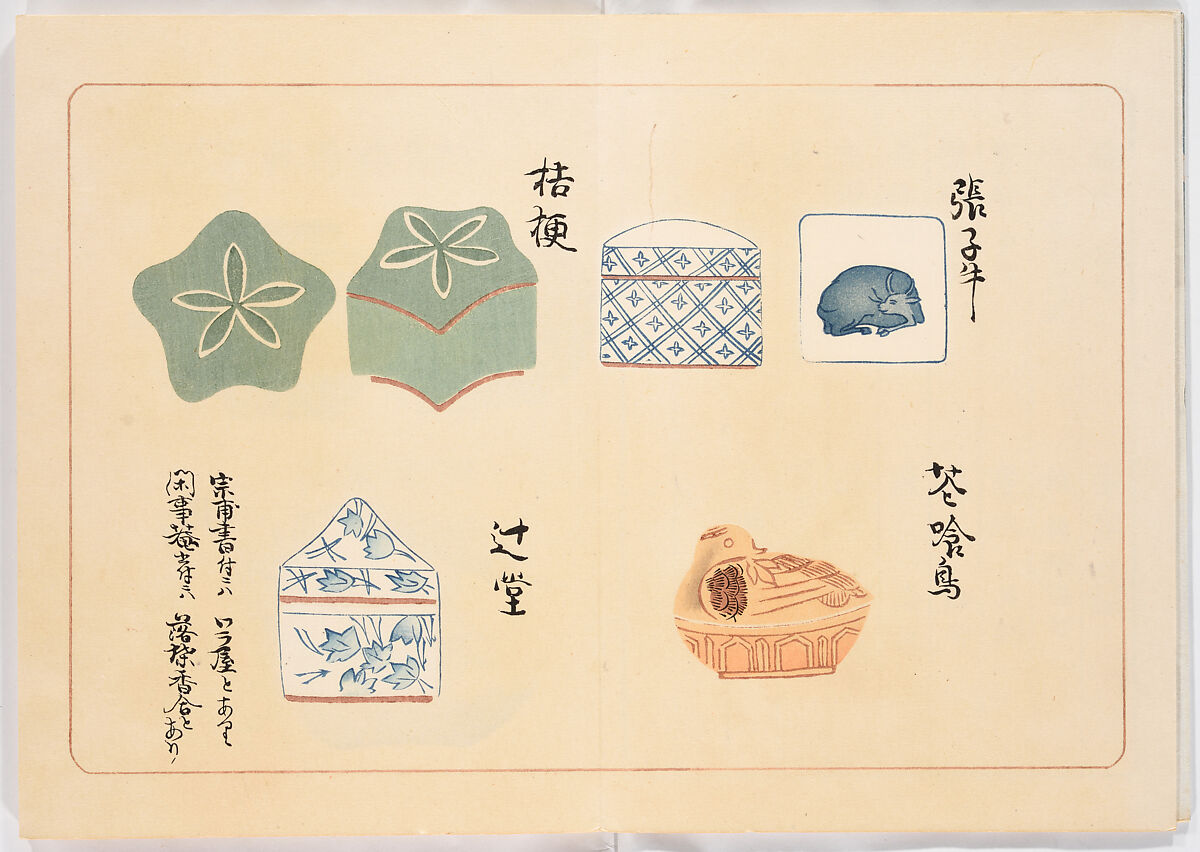 張子牛
桔梗
苍喰鳥
辻堂
宗甫書付ニハ いラ屋とあり
閑事菴書付ニハ 落葉香合とあり